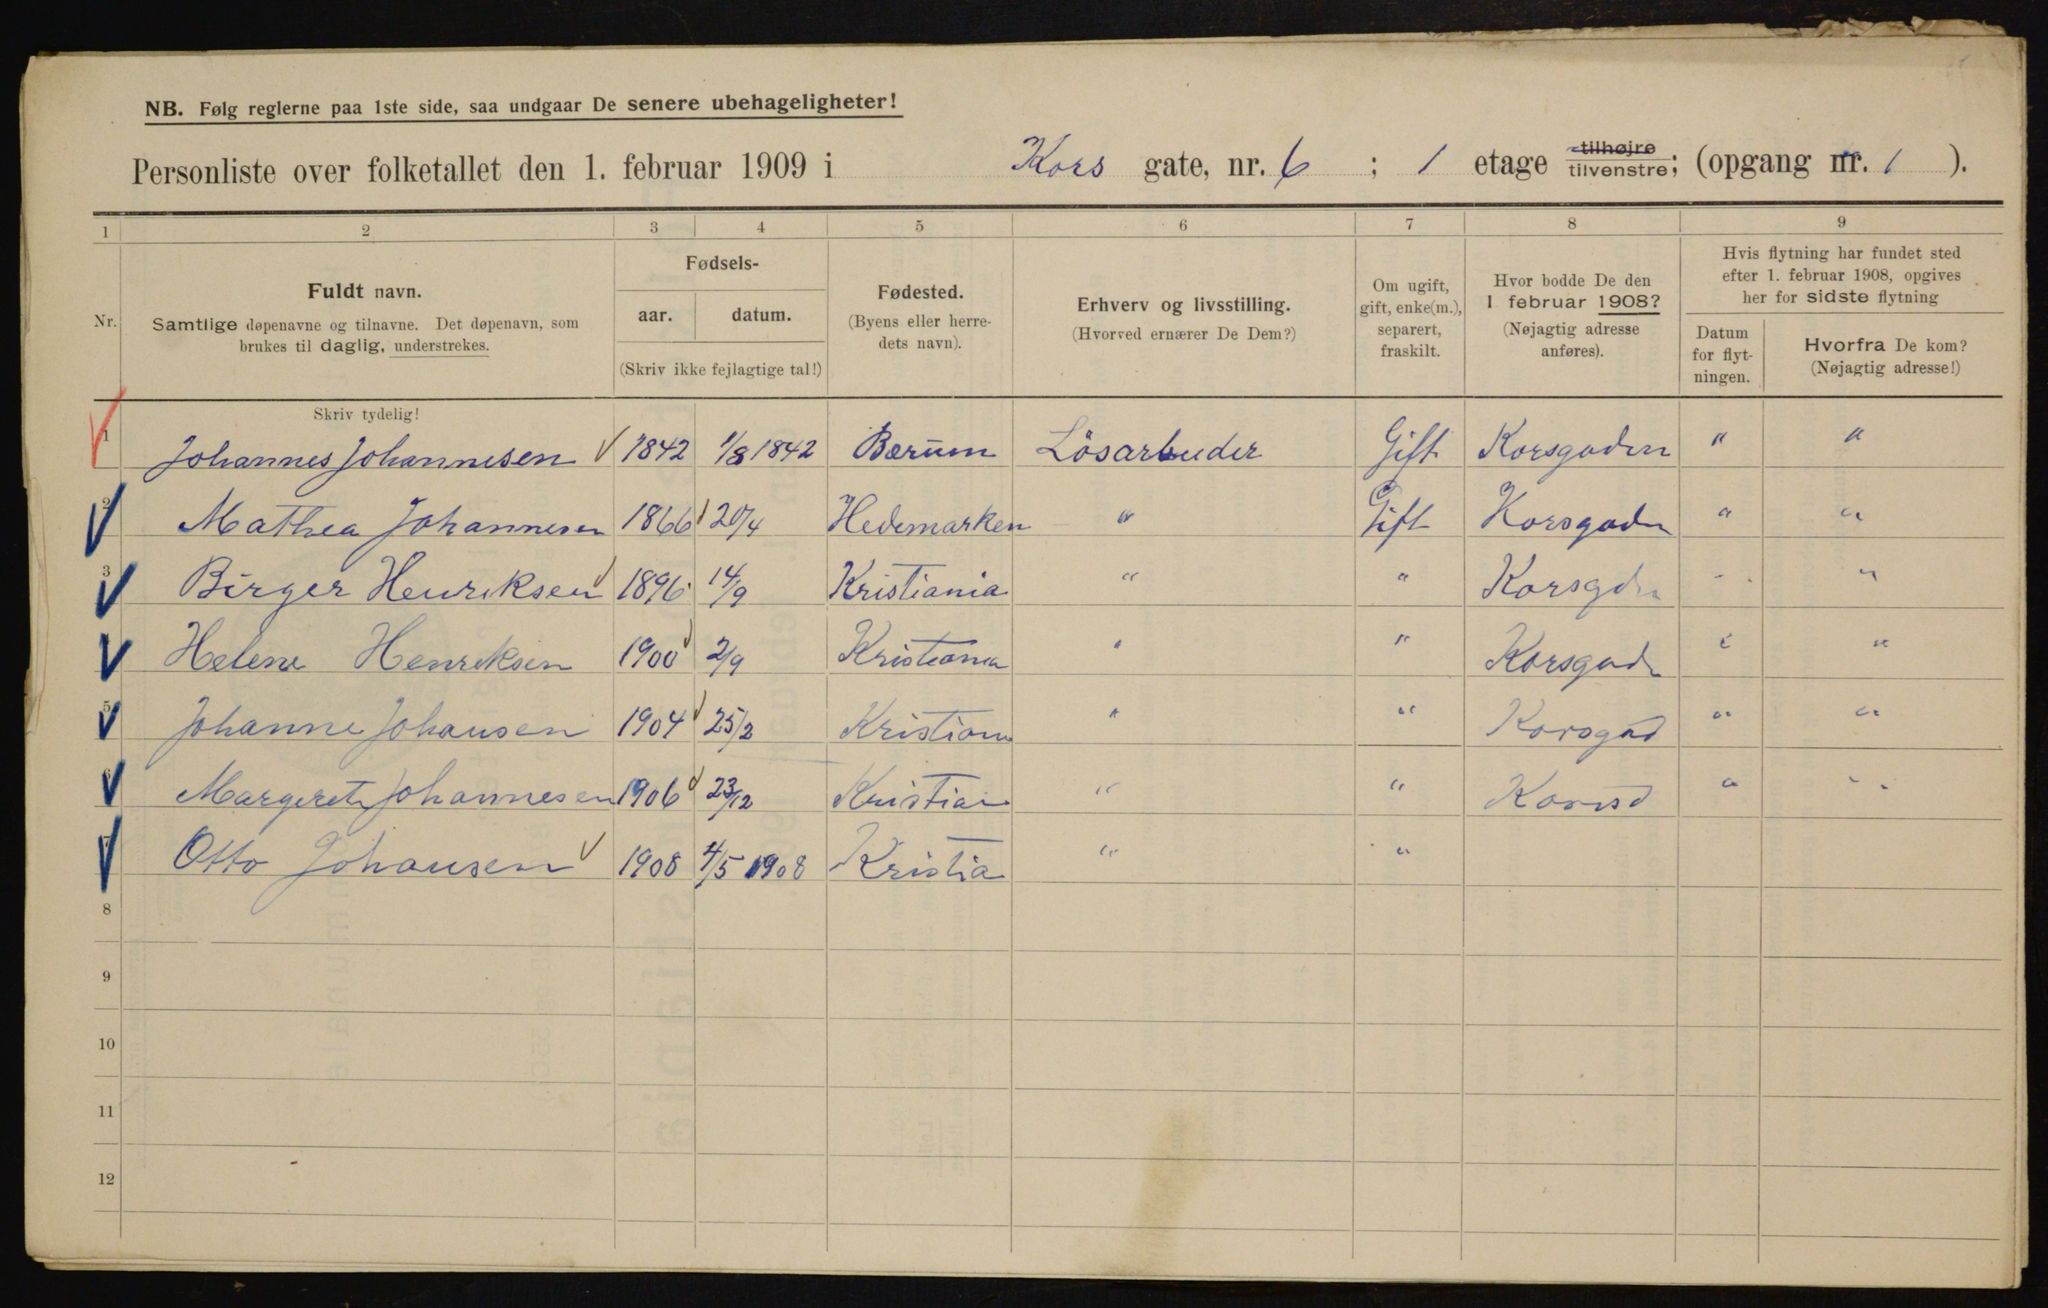 NB. Følg reglerne paa 1ste side, saa undgaar De senere ubehageligheter!
Personliste over folketallet den 1. februar 1909 i Kors gate, nr. 6 ; 1 etage tilhøjre tilvenstre; (opgang nr. 1 ).
1 2 3 4 5 6 7 8 9
Nr.
Fuldt navn.
Samtlige døpenavne og tilnavne. Det døpenavn, som
brukes til daglig, understrekes.
Fødsels-
aar. datum.
(Skriv ikke fejlagtige tal!)
Fødested.
(Byens eller herre-
dets navn).
Erhverv og livsstilling.
(Hvorved ernærer De Dem?)
Om ugift,
gift, enke(m.),
separert,
fraskilt.
Hvor bodde De den
1 februar 1908?
(Nøjagtig adresse
anføres).
Hvis flytning har fundet sted
efter 1. februar 1908, opgives
her for sidste flytning
Datum
for flyt-
ningen.
Hvorfra De kom?
(Nøjagtig adresse!)
Skriv tydelig!
1 Johannes Johannesen 1842 1/8 1842 Bærum Lösarbuder Gift Korsgaden " "
2 Mathea Johannesen 1866 20/4 Hedemarken " Gift Korsgaden " "
3 Birger Henriksen 1896 14/9 Kristiania " " Korsgden " "
Helene Henriksen 1900 2/9 Kristiania " " Korsgade " "
5 Johanne Johansen 1904 25/2 Kristiania " " Korsgad " "
6 Margerete Johannesen 1906 23/12 Kristian " " " "
7 Otto Johansen 1908 4/5 1908 Kristia " "
8
9
10
11
12